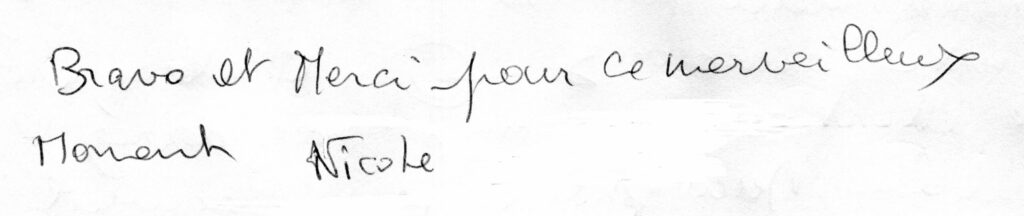 Bravo et Merci pour ce merveilleux
Moment Nicole